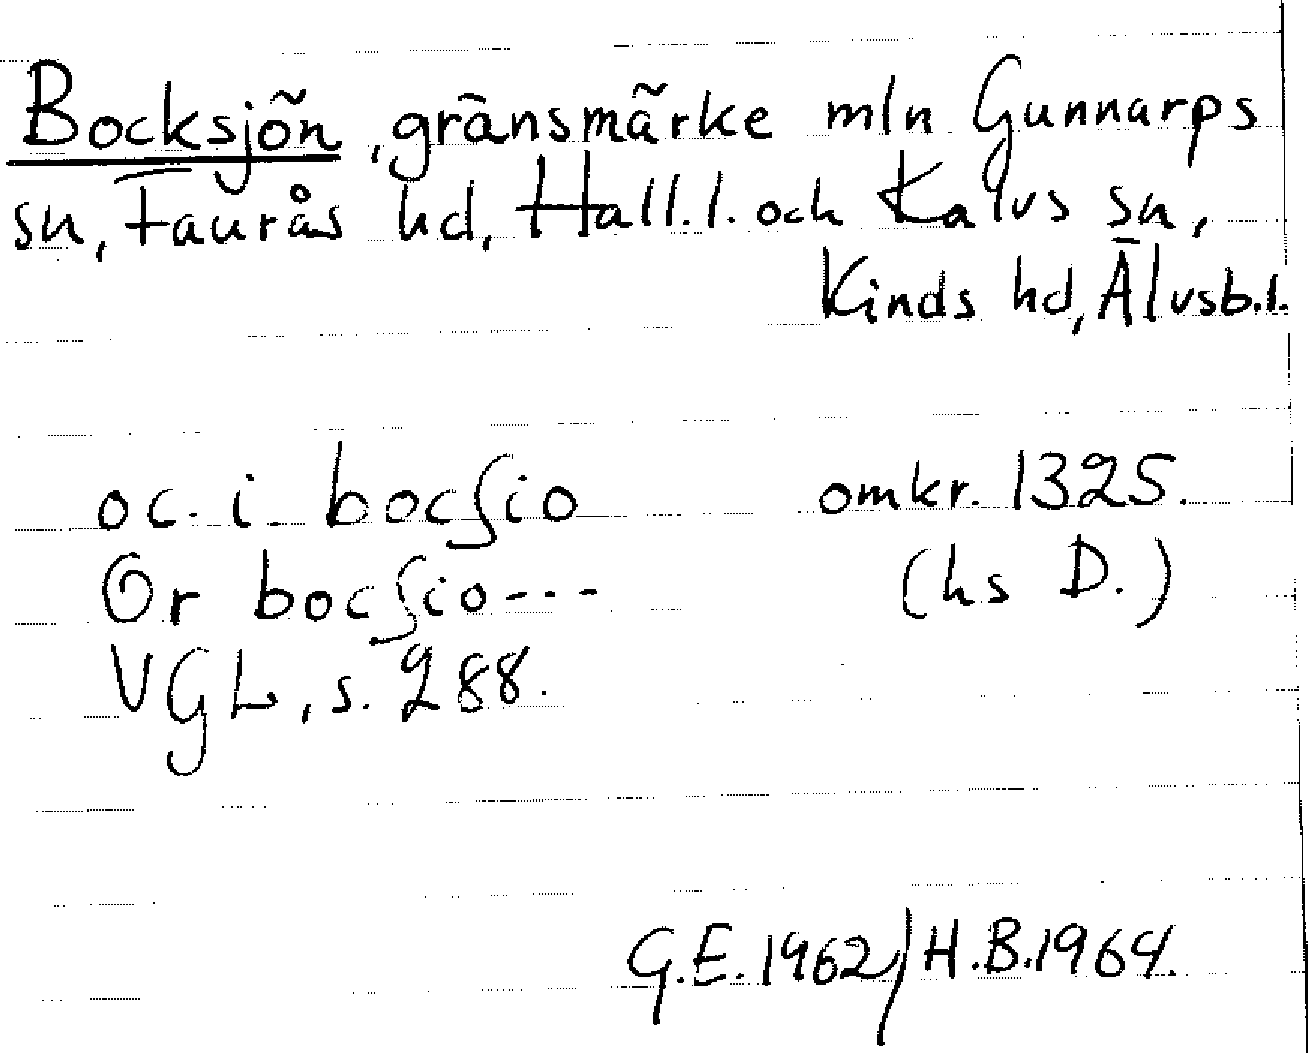 Bocksjön, gränsmärke mln Gunnarps
sn, Faurås hd, Hall.l. och Kalvs sn,
Kinds hd, Älvsb.l.
oc. i bocſio omkr. 1325.
Or bocſio--- (hs D.)
VGL, s. 288.
G.E. 1962/H.B.1964.